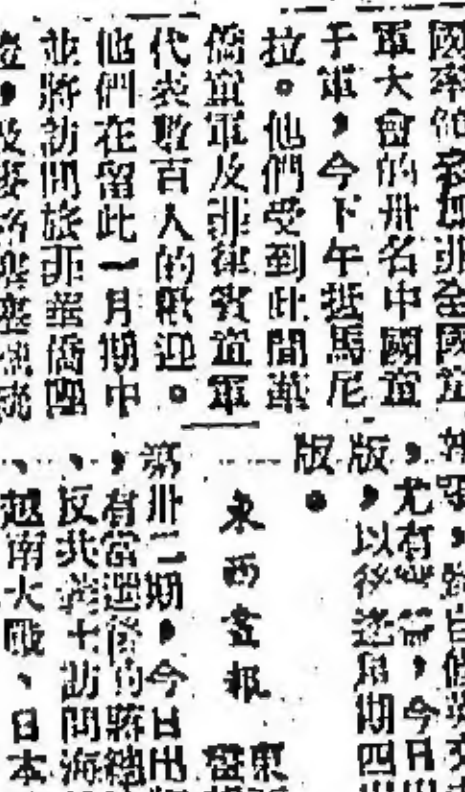 國率領參加菲全國童
軍大會的卅名中國童
子軍,今下午抵馬尼
拉。他們受到此間華
僑童軍及菲律賓童軍
代表數百人的歡迎。
他們在留此一月期中
並將訪問旅菲華僑團
,及麥格塞塞總統
,尤有,今日
版,以後逢星期四
版。
東西畫報
東
畫
第卅二期,今日出
,有當選後的蔣總
、反共義士訪問海
、越南大戰、日本